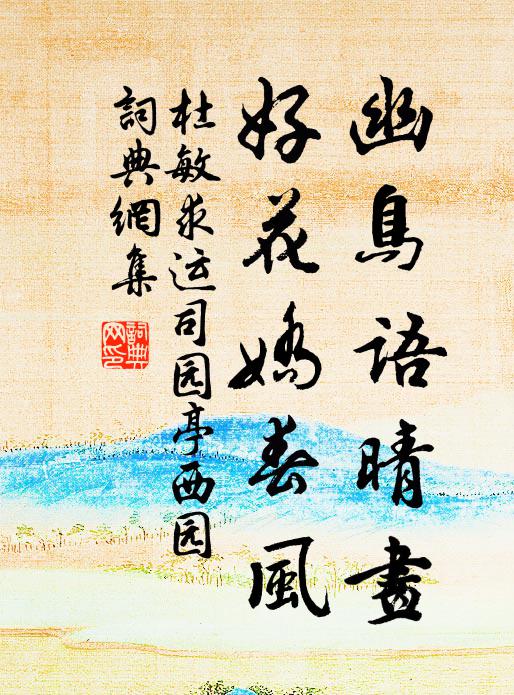 幽鳥語晴晝
好花嬌春風
杜敏求运司园亭西园
詞典網集
詞典网印